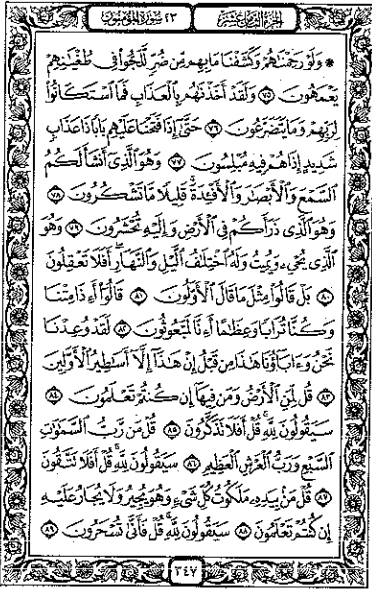 الجُزءُ الثَّامِنَ عَشَرَ ٢٣ سُورَةُ المُؤْمِنُونَ
* وَلَوْ رَحِمْنَٰهُمْ وَكَشَفْنَا مَا بِهِم مِّن ضُرٍّ لَّلَجُّواْ فِي طُغْيَٰنِهِمْ
يَعْمَهُونَ ٧٥ وَلَقَدْ أَخَذْنَٰهُم بِٱلْعَذَابِ فَمَا ٱسْتَكَانُواْ
لِرَبِّهِمْ وَمَا يَتَضَرَّعُونَ ٧٦ حَتَّىٰٓ إِذَا فَتَحْنَا عَلَيْهِم بَابًا ذَا عَذَابٍ
شَدِيدٍ إِذَا هُمْ فِيهِ مُبْلِسُونَ ٧٧ وَهُوَ ٱلَّذِيٓ أَنشَأَ لَكُمُ
ٱلسَّمْعَ وَٱلْأَبْصَٰرَ وَٱلْأَفْـِٔدَةَۚ قَلِيلًا مَّا تَشْكُرُونَ ٧٨
وَهُوَ ٱلَّذِي ذَرَأَكُمْ فِي ٱلْأَرْضِ وَإِلَيْهِ تُحْشَرُونَ ٧٩ وَهُوَ
ٱلَّذِي يُحْيِۦ وَيُمِيتُ وَلَهُ ٱخْتِلَٰفُ ٱلَّيْلِ وَٱلنَّهَارِۚ أَفَلَا تَعْقِلُونَ
٨٠ بَلْ قَالُواْ مِثْلَ مَا قَالَ ٱلْأَوَّلُونَ ٨١ قَالُوٓاْ أَءِذَا مِتْنَا
وَكُنَّا تُرَابًا وَعِظَٰمًا أَءِنَّا لَمَبْعُوثُونَ ٨٢ لَقَدْ وُعِدْنَا
نَحْنُ وَءَابَآؤُنَا هَٰذَا مِن قَبْلُ إِنْ هَٰذَآ إِلَّآ أَسَٰطِيرُ ٱلْأَوَّلِينَ
٨٣ قُل لِّمَنِ ٱلْأَرْضُ وَمَن فِيهَآ إِن كُنتُمْ تَعْلَمُونَ ٨٤
سَيَقُولُونَ لِلَّهِۚ قُلْ أَفَلَا تَذَكَّرُونَ ٨٥ قُلْ مَن رَّبُّ ٱلسَّمَٰوَٰتِ
ٱلسَّبْعِ وَرَبُّ ٱلْعَرْشِ ٱلْعَظِيمِ ٨٦ سَيَقُولُونَ لِلَّهِۚ قُلْ أَفَلَا تَتَّقُونَ
٨٧ قُلْ مَنۢ بِيَدِهِۦ مَلَكُوتُ كُلِّ شَيْءٍ وَهُوَ يُجِيرُ وَلَا يُجَارُ عَلَيْهِ
إِن كُنتُمْ تَعْلَمُونَ ٨٨ سَيَقُولُونَ لِلَّهِۚ قُلْ فَأَنَّىٰ تُسْحَرُونَ ٨٩
٣٤٧